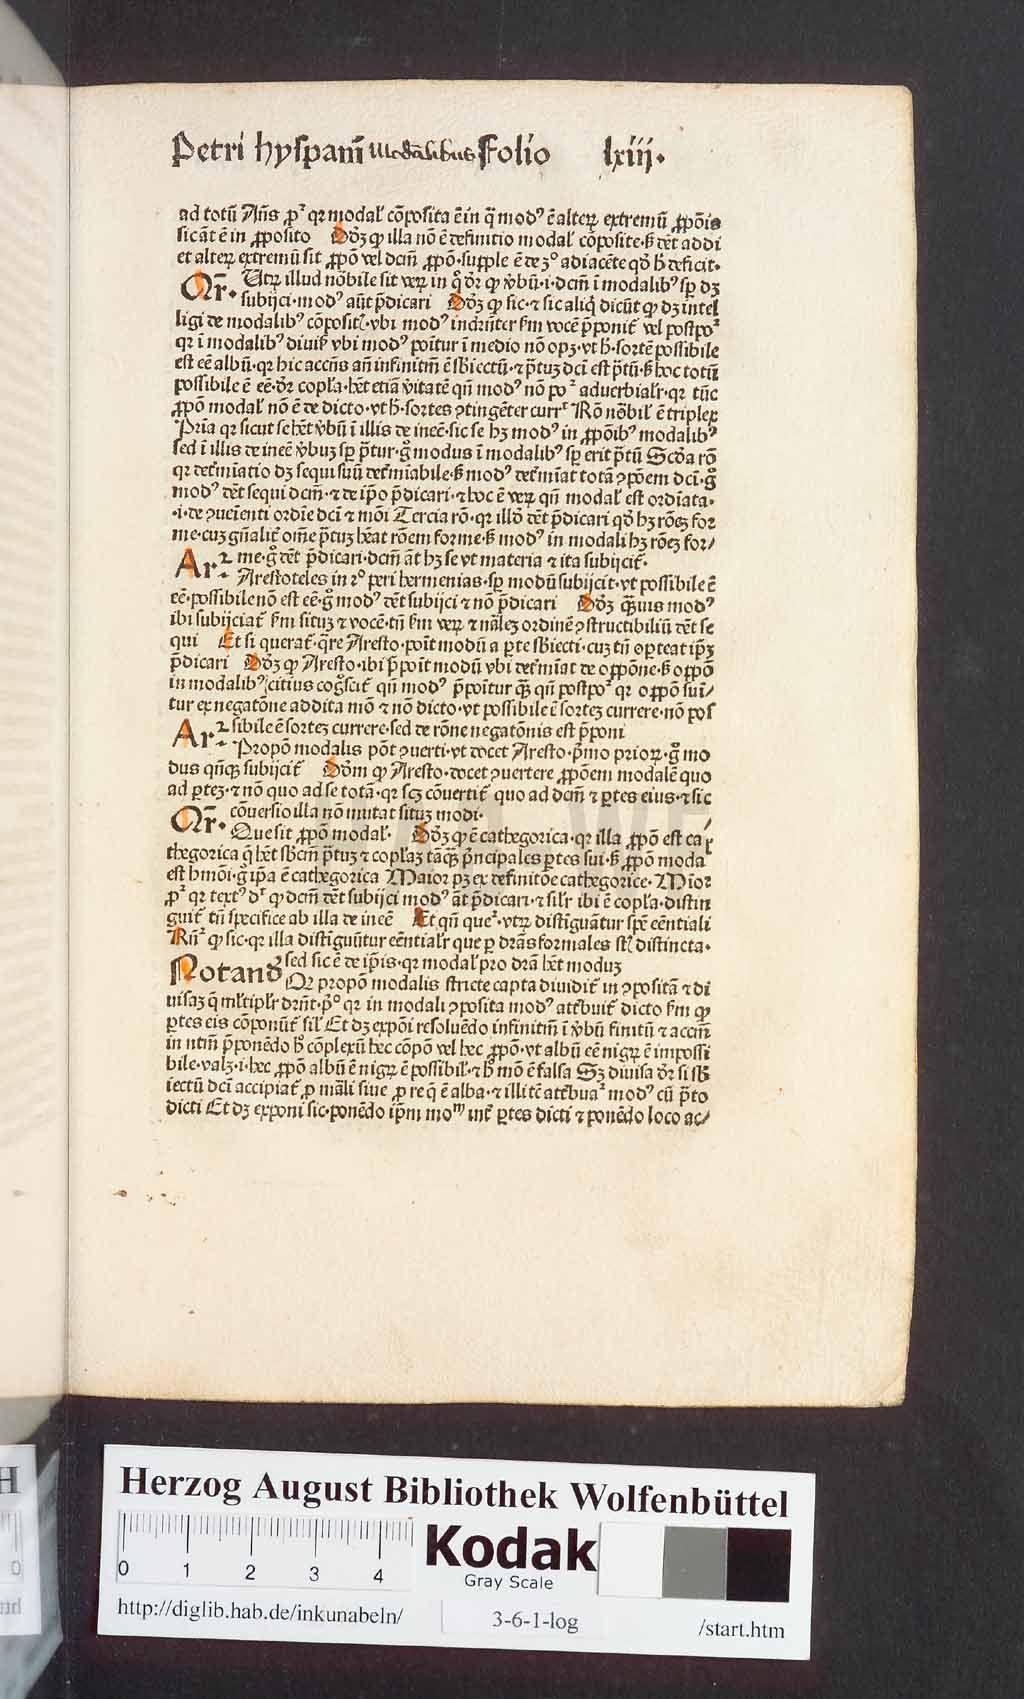 Petri hyspani Modalibus Folio lxiij.
ad totū Añs pꝫ qꝛ modal' cōposita ē in q̄ modꝰ ē alteꝝ extremū ꝓpōis
sic āt ē in ꝓposito Dōꝫ ꝙ illa nō ē definitio modal' cōposite ꝫ dēt addi
et alteꝝ extremū sit ꝓpō vel dcm̄ ꝓpō supple ē de 3° adiacēte qd' h̄ deficit.
Qr̄. Utꝝ illud nōbile sit veꝝ in q° dr̄ ꝙ v̄bū .i. dcm̄ ī modalibꝰ sp̄ dꝫ
subijci modꝰ aūt p̄dicari Dōꝫ ꝙ sic ⁊ sic aliq̄ dicūt ꝙ dꝫ intel
ligi de modalibꝰ cōposit' vbi modꝰ indrn̄ter ẜm vocē p̄ponit̄ vel postpoꝛ
qꝛ ī modalibꝰ diuis' vbi modꝰ poītur ī medio nō opꝫ vt h̄ sortē possibile
est eē albū qꝛ hic accn̄s añ infinitm̄ ē sbiectū ⁊ p̄tuꝫ dci est p̄tū ꝫ hoc totū
possibile ē eē dr̄ copl'a hēt etiā v̄itatē qn̄ modꝰ nō poꝛ aduerbialr̄ qꝛ tūc
ꝓpō modal' nō ē de dicto vt h̄ sortes ꝯtingēter curr' Rō nōbil' ē triplex
Pria qꝛ sicut se hēt v̄bū ī illis de ineē sic se hꝫ modꝰ in ꝓpōibꝰ modalibꝰ
sed ī illis de ineē v̄buꝫ sp̄ p̄tur g° modus ī modalibꝰ sp̄ erit p̄tū Scd'a rō
qꝛ det'mīatio dꝫ sequi suū det'mīabile ꝫ modꝰ det'mīat totā ꝯpōem dci g°
modꝰ dēt sequi dcm̄ ⁊ de ip̄o p̄dicari ⁊ hoc ē veꝝ qn̄ modal' est ordīata.
.i. de ꝯueīenti ordīe dci ⁊ mōi Tercia rō qꝛ illd' dēt p̄dicari qd' hꝫ rōeꝫ for
me cuꝫ gn̄alit̄ om̄e p̄tuꝫ hēat rōem forme ꝫ modꝰ in modali hꝫ rōeꝫ for/
me g° dēt p̄dicari dcm̄ āt hꝫ se vt materia ⁊ ita subijcit̄.
Arꝛ. Arestoteles in 2° peri hermenias sp̄ modū subijcit vt possibile ē
eē possibile nō est eē g° modꝰ dēt subijci ⁊ nō p̄dicari Dōꝫ q̄uis modꝰ
ibi subijciat̄ ẜm situꝫ ⁊ vocē tn̄ ẜm veꝝ ⁊ nāleꝫ ordinē ꝯstructibiliū dēt se
qui Et si querat̄ q̄re Aresto poīt modū a ꝑte sbiecti cuꝫ tn̄ oꝑteat ip̄ꝫ
p̄dicari Dōꝫ ꝙ Aresto ibi p̄poīt modū vbi det'mīat de oppōne ꝫ oppō
in modalibꝰ citius cog°scit̄ qn̄ modꝰ p̄poītur q̄ꝫ qn̄ postpoꝛ qꝛ oppō sui/
tur ex negatōne addita mō ⁊ nō dicto vt possibile ē sortez currere nō pos
sibile ē sortez currere sed de rōne negatōnis est p̄poni
Arꝛ. Propō modalis pōt ꝯuerti vt docet Aresto p̄mo prioꝝ g° mo
dus qn̄qꝫ subijcit̄ Dōm ꝙ Aresto docet ꝯuertere ꝓpōem modalē quo
ad ꝑteꝫ ⁊ nō quo ad se totā qꝛ scꝫ cōuertit̄ quo ad dcm̄ ⁊ ꝑtes eius ⁊ sic
cōuersio illa nō mutat situꝫ modi.
Qr̄. Que sit ꝓpō modal'. Dōꝫ ꝙ ē cathegorica qꝛ illa ꝓpō est ca
thegorica q̄ hēt sbcm̄ p̄tuꝫ ⁊ copl'aꝫ tāq̄ꝫ p̄ncipales ꝑtes sui ꝫ ꝓpō moda
est hmōi g° ip̄a ē cathegorica Maior pꝫ ex definitōe cathegorice. Mīor
pꝫ qꝛ textꝰ dꝛ ꝙ dcm̄ dēt subijci modꝰ āt p̄dicari ⁊ silr̄ ibi ē copl'a distin
guit̄ tn̄ specifice ab illa de ineē Et qn̄ que2 vtꝝ distīguātur spē eēntiali
Rn̄2 ꝙ sic qꝛ illa distīguūtur eēntialr̄ que ꝑ drās formales st̄ distincta.
sed sic ē de ip̄is qꝛ modal' pro drā hēt moduꝫ
Notand' Qꝛ propō modalis stricte capta diuidit̄ in ꝯpositā ⁊ di
uisaꝫ q̄ ml'tiplr̄ drn̄t p° qꝛ in modali ꝯposita modꝰ attribuit̄ dicto ẜm ꝙ
ꝑtes eis cōponūt̄ sil' Et dꝫ expōi resoluēdo infinitm̄ ī v̄bū finitū ⁊ accm̄
in ntm̄ p̄ponēdo h' cōplexū hec cōpō vel hec ꝓpō vt albū eē nigꝝ ē impossi
bile valꝫ .i. hec ꝓpō albū ē nigꝝ ē possibil' ⁊ h' mō ē falsa Sꝫ diuisa dr̄ si sb
iectū dci accipiat̄ ꝓ māli siue ꝓ re q̄ ē alba ⁊ illi tc̄ attribuaꝛ modꝰ cū p̄to
dicti Et dꝫ exponi sic ponēdo ip̄m moᵐ int̄ ꝑtes dicti ⁊ ponēdo loco ac/
Herzog August Bibliothek Wolfenbüttel
0 1 2 3 4
Kodak
Gray Scale
http://diglib.hab.de/inkunabeln/ 3-6-1-log /start.htm